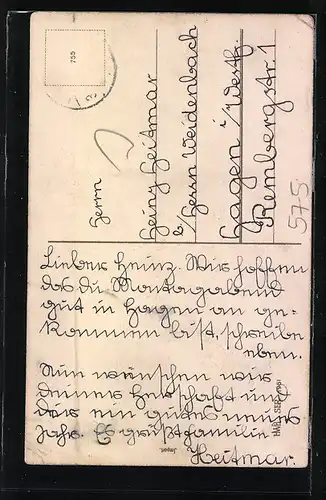 755
Herrn
Heinz Heitmar
b/Herrn Weidenbach
Hagen i/Westf.
Rembergstr. 1
575
Lieber Heinz. Wir hoffen
das du Montagabend
gut in Hagen an ge=
kommen bist, schreibe
eben.
Nun wünschen wir
deiner Herschaft und
dir ein gutes neues
Jahr. Es grüßt familie
Heitmar.